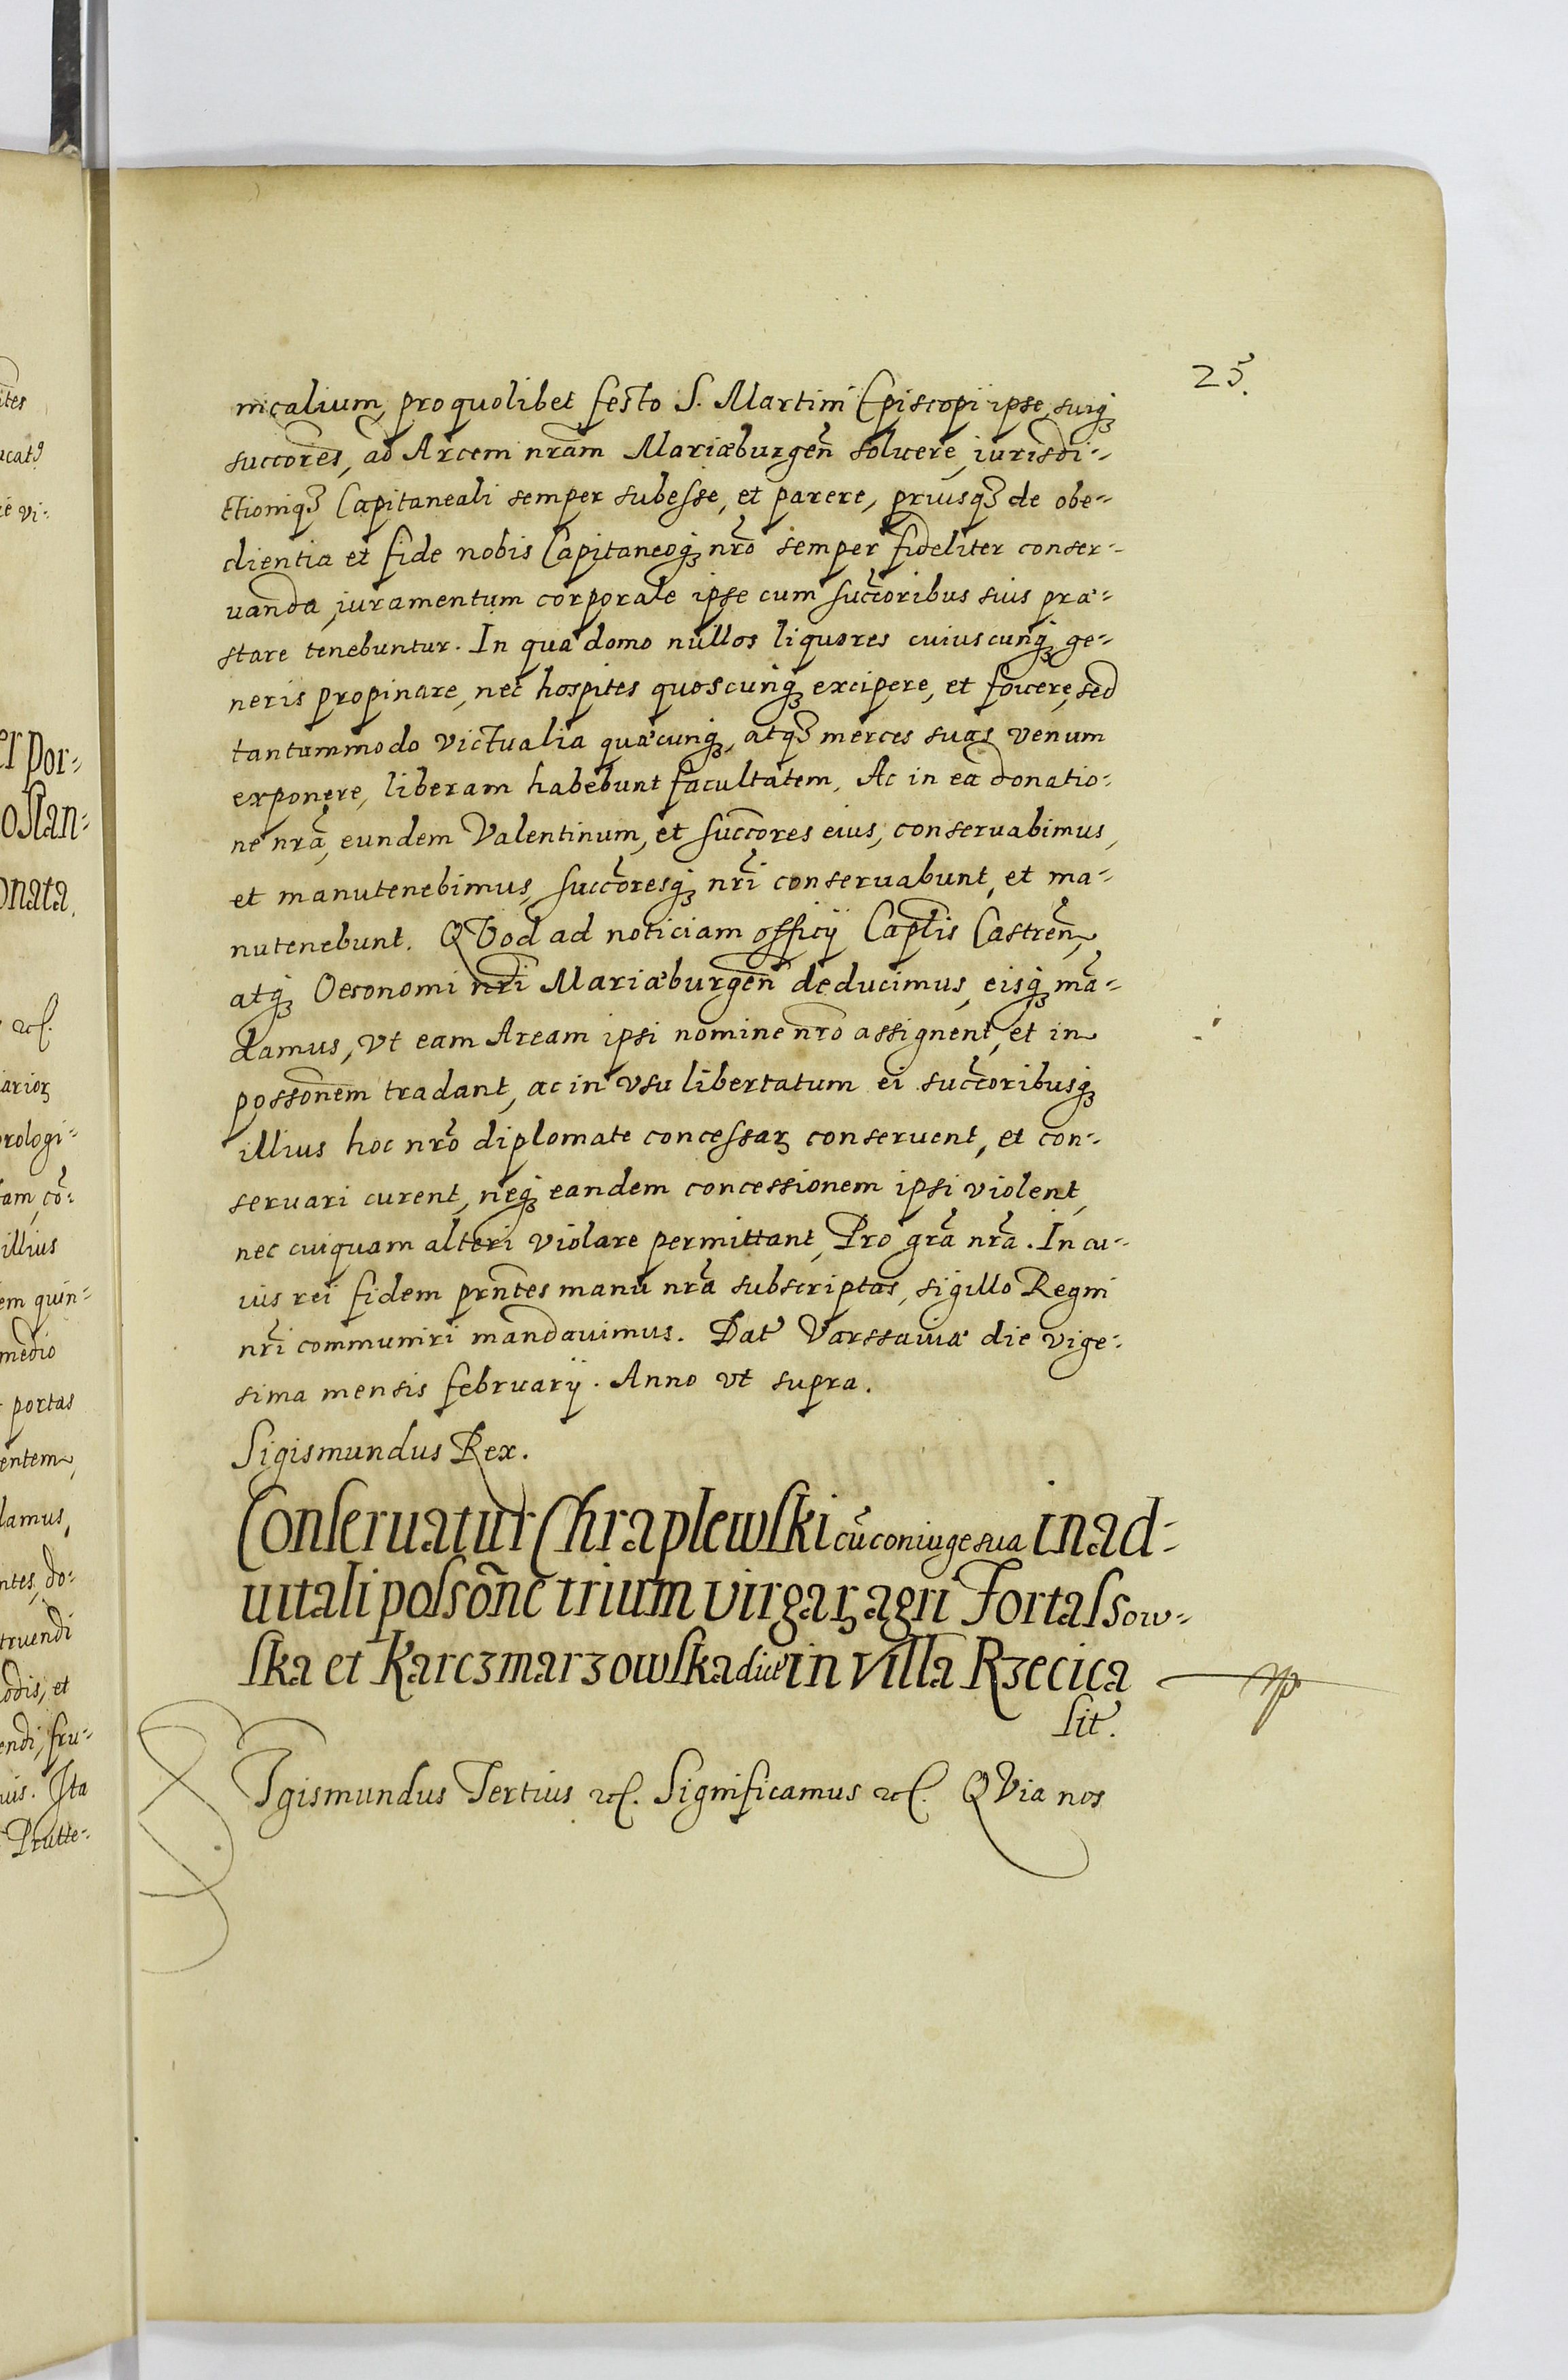 25.
nicalium, pro quolibet festo S. Martini Episcopi ipse, suiqꝫ
succores, ad Arcem nram Mariæburgen̄ soluere, iurisdi-
ctioniqꝫ Capitaneali semper subesse, et parere, priusqꝫ de obe-
dientia et fide nobis Capitaneoqꝫ nro semper fideliter conser-
uanda, iuramentum corporale ipse cum succoribus suis præ-
stare tenebuntur. In qua domo nullos liquores cuiuscunqꝫ ge-
neris propinare, nec hospites quoscunqꝫ excipere, et fouere, sed
tantummodo victualia quæcunqꝫ, atqꝫ merces suas venum
exponere, liberam habebunt facultatem, Ac in ea donatio-
ne nra, eundem Valentinum, et succores eius, conseruabimus,
et manutenebimus, succoresqꝫ nri conseruabunt, et ma-
nutenebunt. QVod ad noticiam officij Captlis Castren̄,
atqꝫ Oeconomi nri Mariæburgen̄ deducimus, eisqꝫ mā-
damus, vt eam Aream ipsi nomine nro assignent, et in
possonem tradant, ac in vsu libertatum ei succoribusqꝫ
illius hoc nro diplomate concessaꝝ conseruent, et con-
seruari curent, neqꝫ eandem concessionem ipsi violent,
nec cuiquam alteri violare permittant, Pro gra nra. In cu-
ius rei fidem prntes manu nra subscriptas, sigillo Regni
nri communiri mandauimus. Dat Varssauiæ die vige-
sima mensis februarij. Anno vt supra.
Sigismundus Rex.
Conseruatur Chraplewski cū coniuge sua in ad-
uitali possōne trium virgaꝝ agri Fortassow-
ska et Karczmarzowska dict in villa Rzecica
sit.
SIgismundus Tertius etc. Significamus etc. QVia nos